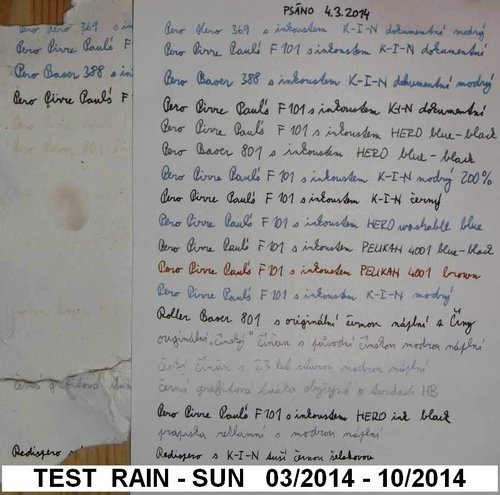 PSÁNO 4.3.2014
Pero Hero 369 s inkoustem K-I-N dokumentní modrý
Pero Pirre Pauls F101 s inkoustem K-I-N dokumentní
Pero Baoer 388 s inkoustem K-I-N dokumentní modrý
Pero Pirre Paul's F101 s inkoustem K-I-N dokumentní
Pero Pirre Paul's F 101 s inkoustem HERO blue-black
Pero Baoer 801 s inkoustem HERO blue-black
Pero Pirre Paul's F101 s inkoustem K-I-N modrý 200%
Pero Pirre Paul's F 101 s inkoustem K-I-N černý
Pero Pirre Paul's F101 s inkoustem HERO washable blue
Pero Pirre Paul's F101 s inkoustem PELIKAN 4001 blue-black
Pero Pirre Paul's F101 s inkoustem PELIKAN 4001 brown
Pero Pirre Paul's F101 s inkoustem K-I-N modrý
Roller Baoer 801 s originální černou náplní z Číny
originální "čínský" čínčan s původní čínskou modrou náplní
český čínčan s 23 let starou modrou náplní
černá grafitová tužka o tvrdosti HB
Pero Pirre Paul's F101 s inkoustem HERO ink black
propiska reklamní s modrou náplní
Redispero s K-I-N tuší černou šelakovou
Pero Hero 369 s in
Pero Pirre Paul's F
Pero Baoer 388 s in
Pero Pirre Paul's F
Pero Baoer 801
černá grafitová
Redispero s
TEST RAIN - SUN 03/2014 - 10/2014